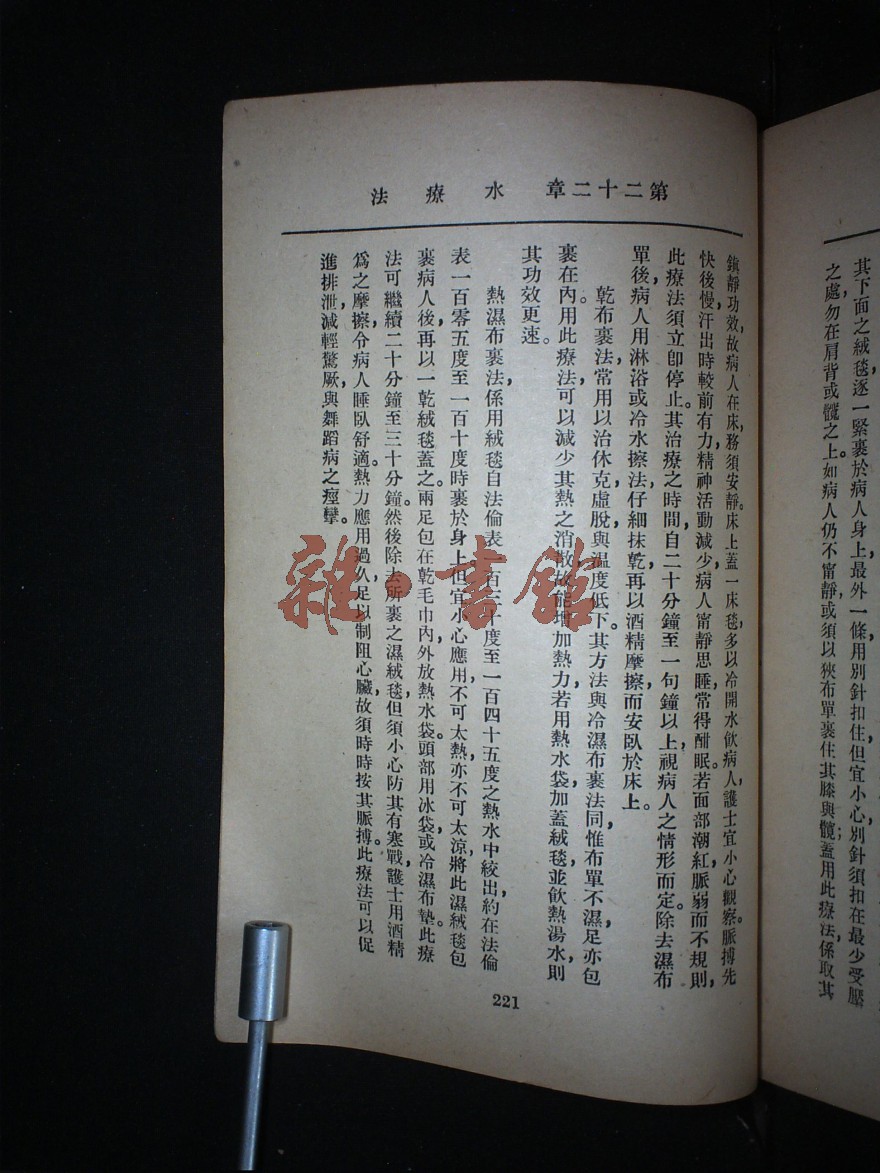 其下面之絨毯逐一緊裹於病人身上最外一條用別針扣住但宜小心別針須扣在最少受壓
之處勿在肩背或髖之上如病人仍不甯靜或須以狹布單裹住其膝與髖蓋用此療法係取其
第二十二章 水療法
鎮靜功效，故病人在床，務須安靜。床上蓋一床毯，多以冷開水飲病人，護士宜小心觀察脈搏先
快後慢，汗出時較前有力，精神活動減少，病人甯靜思睡，常得酣眠。若面部潮紅，脈弱而不規則，
此療法須立卽停止。其治療之時間，自二十分鐘至一句鐘以上，視病人之情形而定。除去濕布
單後，病人用淋浴或冷水擦法，仔細抹乾，再以酒精摩擦，而安臥於床上。
乾布裹法，常用以治休克虛脫與溫度低下。其方法與冷濕布裹法同，惟布單不濕，足亦包
裹在內。用此療法，可以減少其熱之消散，故能增加熱力，若用熱水袋，加蓋絨毯，並飲熱湯水，則
其功效更速。
熱濕布裹法，係用絨毯自法倫表一百三十度至一百四十五度之熱水中絞出，約在法倫
表一百零五度至一百十度時裹於身上，但宜小心應用，不可太熱，亦不可太涼，將此濕絨毯包
裹病人後，再以一乾絨毯蓋之。兩足包在乾毛巾內，外放熱水袋，頭部用冰袋，或冷濕布墊。此療
法可繼續二十分鐘至三十分鐘，然後除去所裹之濕絨毯，但須小心防其有寒戰，護士用酒精
爲之摩擦，令病人睡臥舒適。熱力應用過久，足以制阻心臟，故須時時按其脈搏。此療法可以促
進排泄，減輕驚厥，與舞蹈病之痙攣。
221
雜·書館